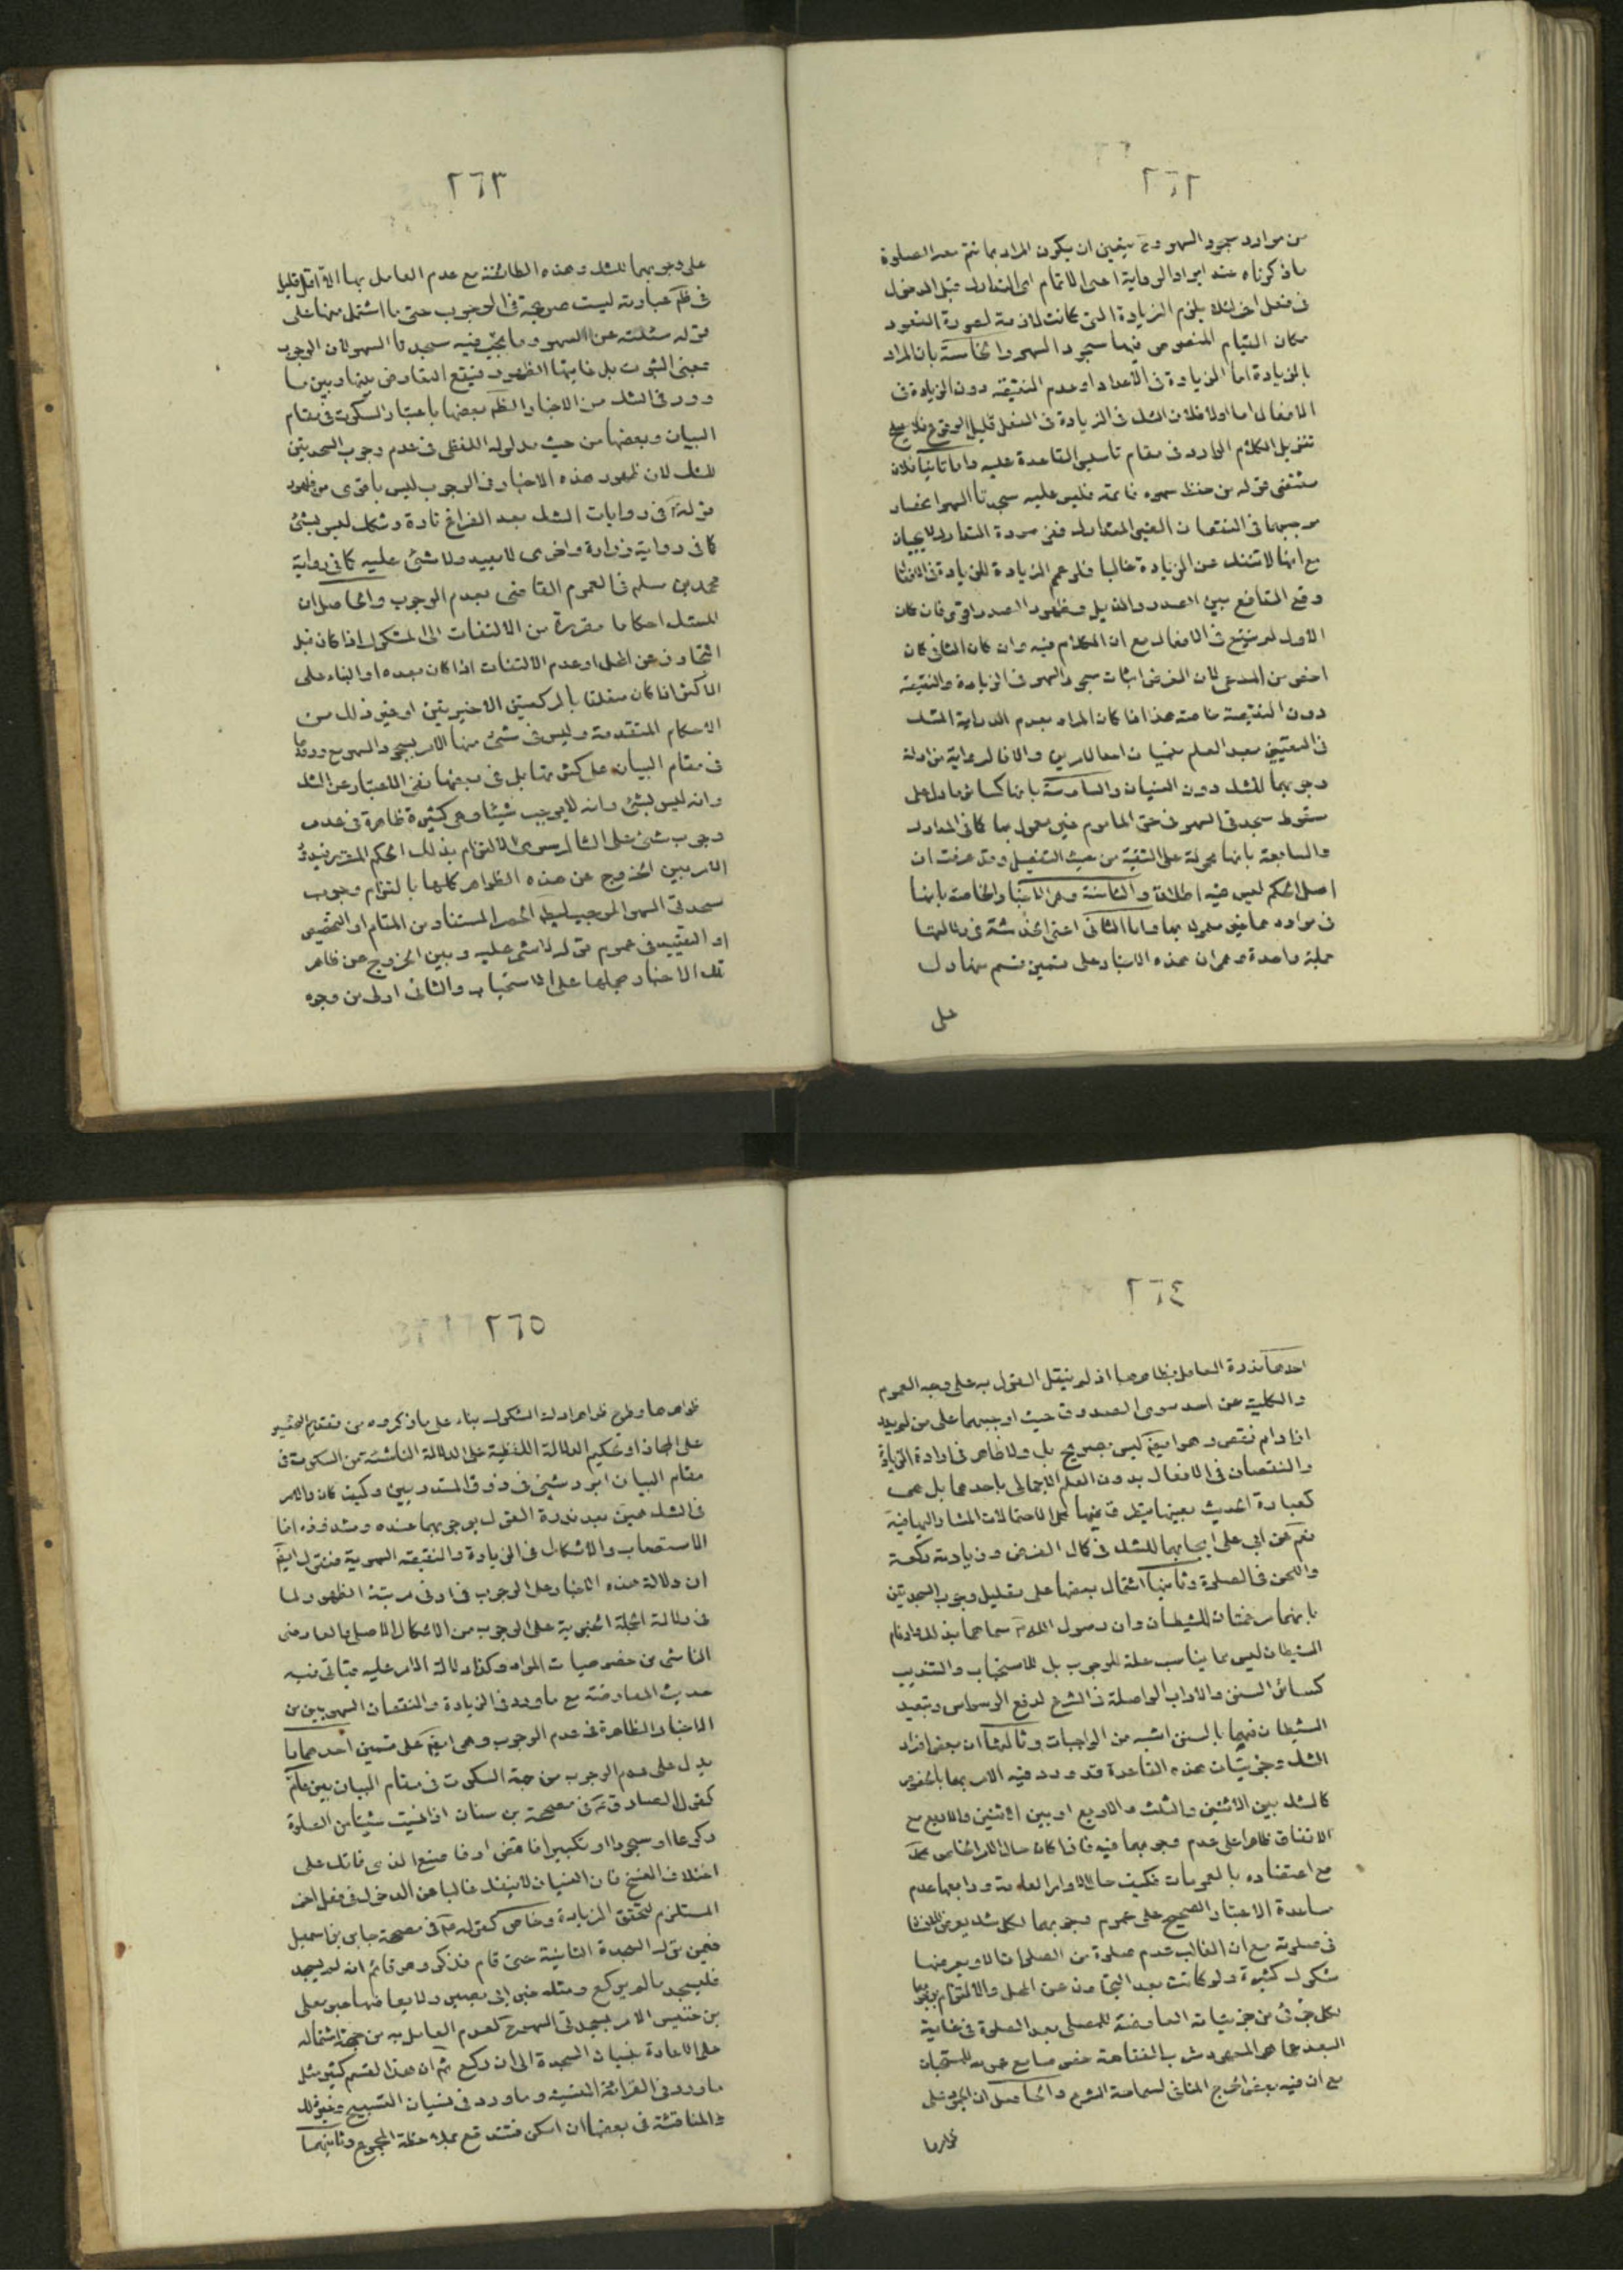 ٢٦٢
من موارد سجود السهو وح يتعين ان يكون المراد بما تتم معه الصلوة
ما ذكرناه عند ايراد الرواية اعنى الاتمام اى التدارك قبل الدخول
فى فعل اخر لئلا يلزم الزيادة التى كانت لازمة لصورة القعود
مكان القيام المنصوص فيها سجود السهو والخامسة بان المراد
بالزيادة اما الزيادة فى الاعداد او عدم النقيصة دون الزيادة فى
الافعال اما اولا فلان الشك فى الزيادة فى الفعل قليل الوقوع فلا يصلح
تنزيل الكلام الوارد فى مقام تاسيس القاعدة عليه واما ثانيا فلان
مقتضى قوله من حفظ سهوه فاتمه فليس عليه سجدتا السهو انحصار
موجبهما فى النقصان الغير المتدارك ففى صورة التدارك لا يجبان
مع انها لا تنفك عن الزيادة غالبا فلو عم الزيادة للزيادة فى الافعال
وقع التدافع بين الصدر والذيل وظهور الصدر اقوى فان كان
الاول لم ينتج فى الافعال مع ان الكلام فيه وان كان الثانى كان
اخص من المدعى لان الغرض اثبات سجود السهو فى الزيادة والنقيصة
دون النقيصة خاصة هذا اذا كان المراد بعدم الدراية الشك
فى التعيين بعد العلم بنسيان احد الامرين والا فالرواية من ادلة
وجوبهما للشك دون النسيان والسادسة بانها كسائر ما دل على
سقوط سجدتى السهو فى حق الماموم غير معمول بها كما فى المدارك
والسابعة بانها محمولة على التقية من حيث التفصيل وقد عرفت ان
اصل الحكم ليس فيه اطلاق والثامنة وهى الاخبار الخاصة بانها
فى موارد خاصة غير معمول بها واما الثانى اعنى الخدشة فى دلالتها
جملة واحدة فهو ان هذه الاخبار على قسمين قسم منها دل
على
٢٦٣
على وجوبهما للشك وهذه الطائفة مع عدم العامل بها الا اقل قليل
فى ظم عبارته ليست صريحة فى الوجوب حتى ما اشتمل منها على
قوله سئلته عن السهو وما يجب فيه سجدتا السهو لان الوجوب
بمعنى الثبوت بل غايتها الظهور فيقع التعارض بينها وبين ما
ورد فى الشك من الاخبار الظم بعضها باعتبار السكوت فى مقام
البيان وبعضها من حيث مدلوله اللفظى فى عدم وجوب السجدتين
للشك لان ظهور هذه الاخبار فى الوجوب ليس باقوى من ظهور
قوله ع فى روايات الشك بعد الفراغ تارة وشكك ليس بشئ
كما فى رواية زرارة واخرى لا يعيد ولا شئ عليه كما فى رواية
محمد بن مسلم فالعموم القاضى بعدم الوجوب والحاصل ان
للشك احكاما مقررة من الالتفات الى المشكوك اذا كان قبل
التجاوز عن المحل او عدم الالتفات اذا كان بعده او البناء على
الاكثر اذا كان متعلقا بالركعتين الاخيرتين او غير ذلك من
الاحكام المتقدمة وليس فى شئ منها الامر بسجود السهو مع ورودها
فى مقام البيان على كثرتها بل فى بعضها نفى الاعتبار عن الشك
وانه ليس بشئ وانه لا يوجب شيئا وهى كثيرة ظاهرة فى عدم
وجوب شئ على الشاك سوى الالتزام بذلك الحكم المقرر فيدور
الامر بين الخروج عن هذه الظواهر كلها بالتزام وجوب
سجدتى السهو الموجب لبطلان الحصر المستفاد من المقام او التخصيص
او التقييد فى عموم قوله لا شئ عليه وبين الخروج عن ظاهر
تلك الاخبار بحملها على الاستحباب والثانى اولى من وجوه
٢٦٤
احدها ندرة العامل بظاهرها اذ لم ينقل القول به على وجه العموم
والكلية عن احد سوى الصدوق حيث اوجبهما على من لم يدر
ازاد ام نقص وهو ايضا ليس بصريح بل ولا ظاهر فى ارادة الزيادة
والنقصان فى الافعال بدون العلم الاجمالى باحدهما بل هى
كعبارة الحديث بعينها يتطرق فيها الاحتمالات المشار اليها فيه
نعم عن ابى على ايجابهما للشك فى كمال الفرض وزيادة ركعة
واللحن فى الصلوة وثانيها اشتمال بعضها على تعليل وجوب السجدتين
بانهما مرغمتان للشيطان وان رسول الله ص سماهما بذلك وارغام
الشيطان ليس مما يناسب علة للوجوب بل للاستحباب والتاديب
كسائر السنن والاداب الواصلة فى الشرع لدفع الوسواس وتبعيد
الشيطان فهما بالسنن اشبه من الواجبات وثالثها ان بعض افراد
الشك وجزئيات هذه القاعدة قد ورد فيه الامر بهما بالخصوص
كالشك بين الاثنين والثلث والاربع او بين الاثنين والاربع مع
الاتفاق ظاهرا على عدم وجوبهما فيه فاذا كان حال الامر الخاص
مع اعتضاده بالعمومات فكيف حال الاوامر العامة ورابعها عدم
مساعدة الاعتبار الصحيح على عموم وجوبهما لكل شك يعرض للانسان
فى صلوته مع ان الغالب عدم صلوة من الصلوات الا ويعرضها
شكوك كثيرة ولو كانت بعد التجاوز عن المحل والالتزام بوجوبها
لكل جزئى من جزئياته العارضة للمصلى بعد الصلوة فى غاية
البعد عما هو المعهود
مع ان فيه بعض الحرج المنافى لسماحة الشرع والحاصل ان الجمود على
ظواهرها
٢٦٥
ظواهرها وطرح ظواهر ادلة الشكوك بناء على ما ذكروه من تقديم التخصيص
على المجاز او تحكيم الدلالة اللفظية على الدلالة الناشئة من السكوت فى
مقام البيان ابرد شئ فى ذوق المتدربين وكيف كان فالامر
فى الشك هين بعد ندرة القول بوجوبهما عنده وشذوذه انما
الاستصعاب والاشكال فى الزيادة والنقيصة السهوية فنقول ايضا
ان دلالة هذه الاخبار على الوجوب فى ادنى مرتبة الظهور لما
فى دلالة الجملة الخبرية على الوجوب من الاشكال الاصلى والعارضى
الناشى من خصوصيات الموارد وكذا دلالة الامر عليه فياتى فيه
حديث المعارضة مع ما ورد فى الزيادة والنقصان السهويين من
الاخبار الظاهرة فى عدم الوجوب وهى ايضا على قسمين احدهما ما
يدل على عدم الوجوب من جهة السكوت فى مقام البيان بين عام
كقول الصادق ع فى صحيحة بن سنان اذا نسيت شيئا من الصلوة
ركوعا او سجودا او تكبيرا فاقض او فاصنع الذى فاتك على
اختلاف النسخ فان النسيان لا ينفك غالبا عن الدخول فى فعل اخر
المستلزم لتحقق الزيادة وخاص كقوله ع فى صحيحة جابر بن اسمعيل
فيمن ترك السجدة الثانية حتى قام فذكر وهو قائم انه لم يسجد
فليسجد ما لم يركع ومثله خبر ابى بصير ولا يعارضها خبر معلى
بن خنيس الامر بسجدتى السهو ح لعدم العامل به من جهة اشتماله
على الاعادة بنسيان السجدة الى ان ركع ثم ان هذا القسم كثير مثل
ما ورد فى القرائة المنسية وما ورد فى نسيان التسبيح وغير ذلك
والمناقشة فى بعضها ان امكن فتندفع بملاحظة المجموع وثانيهما